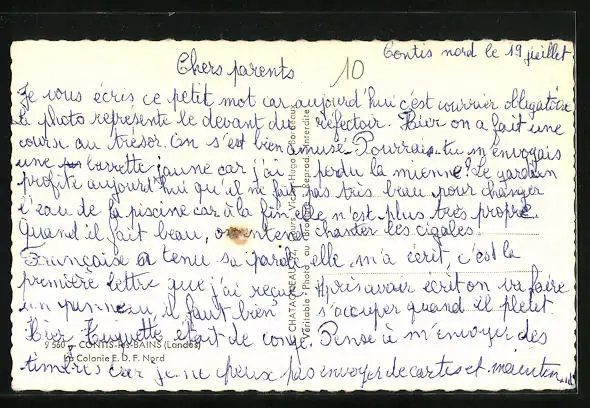 Contis nord le 19 juillet
Chers parents
10
Je vous écris ce petit mot car aujourd'hui c'est courrier obligatoire
la photo représente le devant du réfectoir. Hier on a fait une
course au trésor. On s'est bien amusé. Pourrais-tu m'envoyais
une barrette jaune car j'ai perdu la mienne? Le gardien
profite aujourd'hui qu'il ne fait pas très beau pour changer
l'eau de la piscine car à la fin elle n'est plus très propre.
Quand il fait beau, on entend chanter les cigales
Françoise a tenu sa parole elle m'a écrit, c'est la
première lettre que j'ai reçu écrit on va faire
un panneau, il faut bien s'occuper quand il pleut.
Hier, Huguette était de congé. Pense à m'envoyer des
timbres car je ne peux pas envoyer de cartes et
CONTIS-les-BAINS (Landes)
La Colonie E. D. F. Nord
Victor-Hugo
Véritable Photo au Bromure - Reprod. Interdite